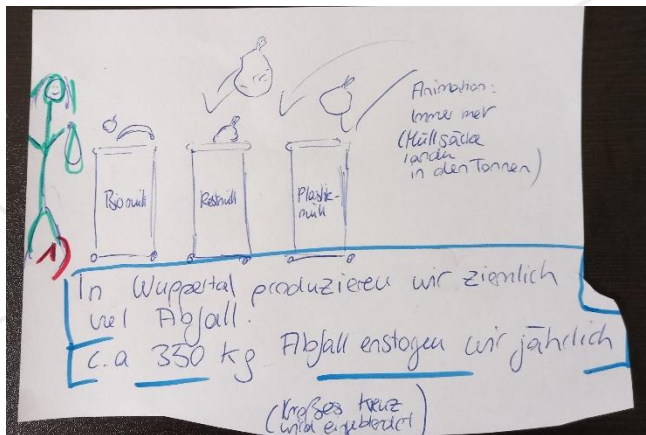 Animation:
Immer mer
(Müllsäcke
landen
in den Tonnen)
Biomüll
Restmüll
Plastik-
müll
1)
In Wuppertal produzieren wir ziemlich
viel Abfall.
C.a 350 kg Abfall enstogen wir jährlich
(Großes Kreuz
wird eingeblendet)